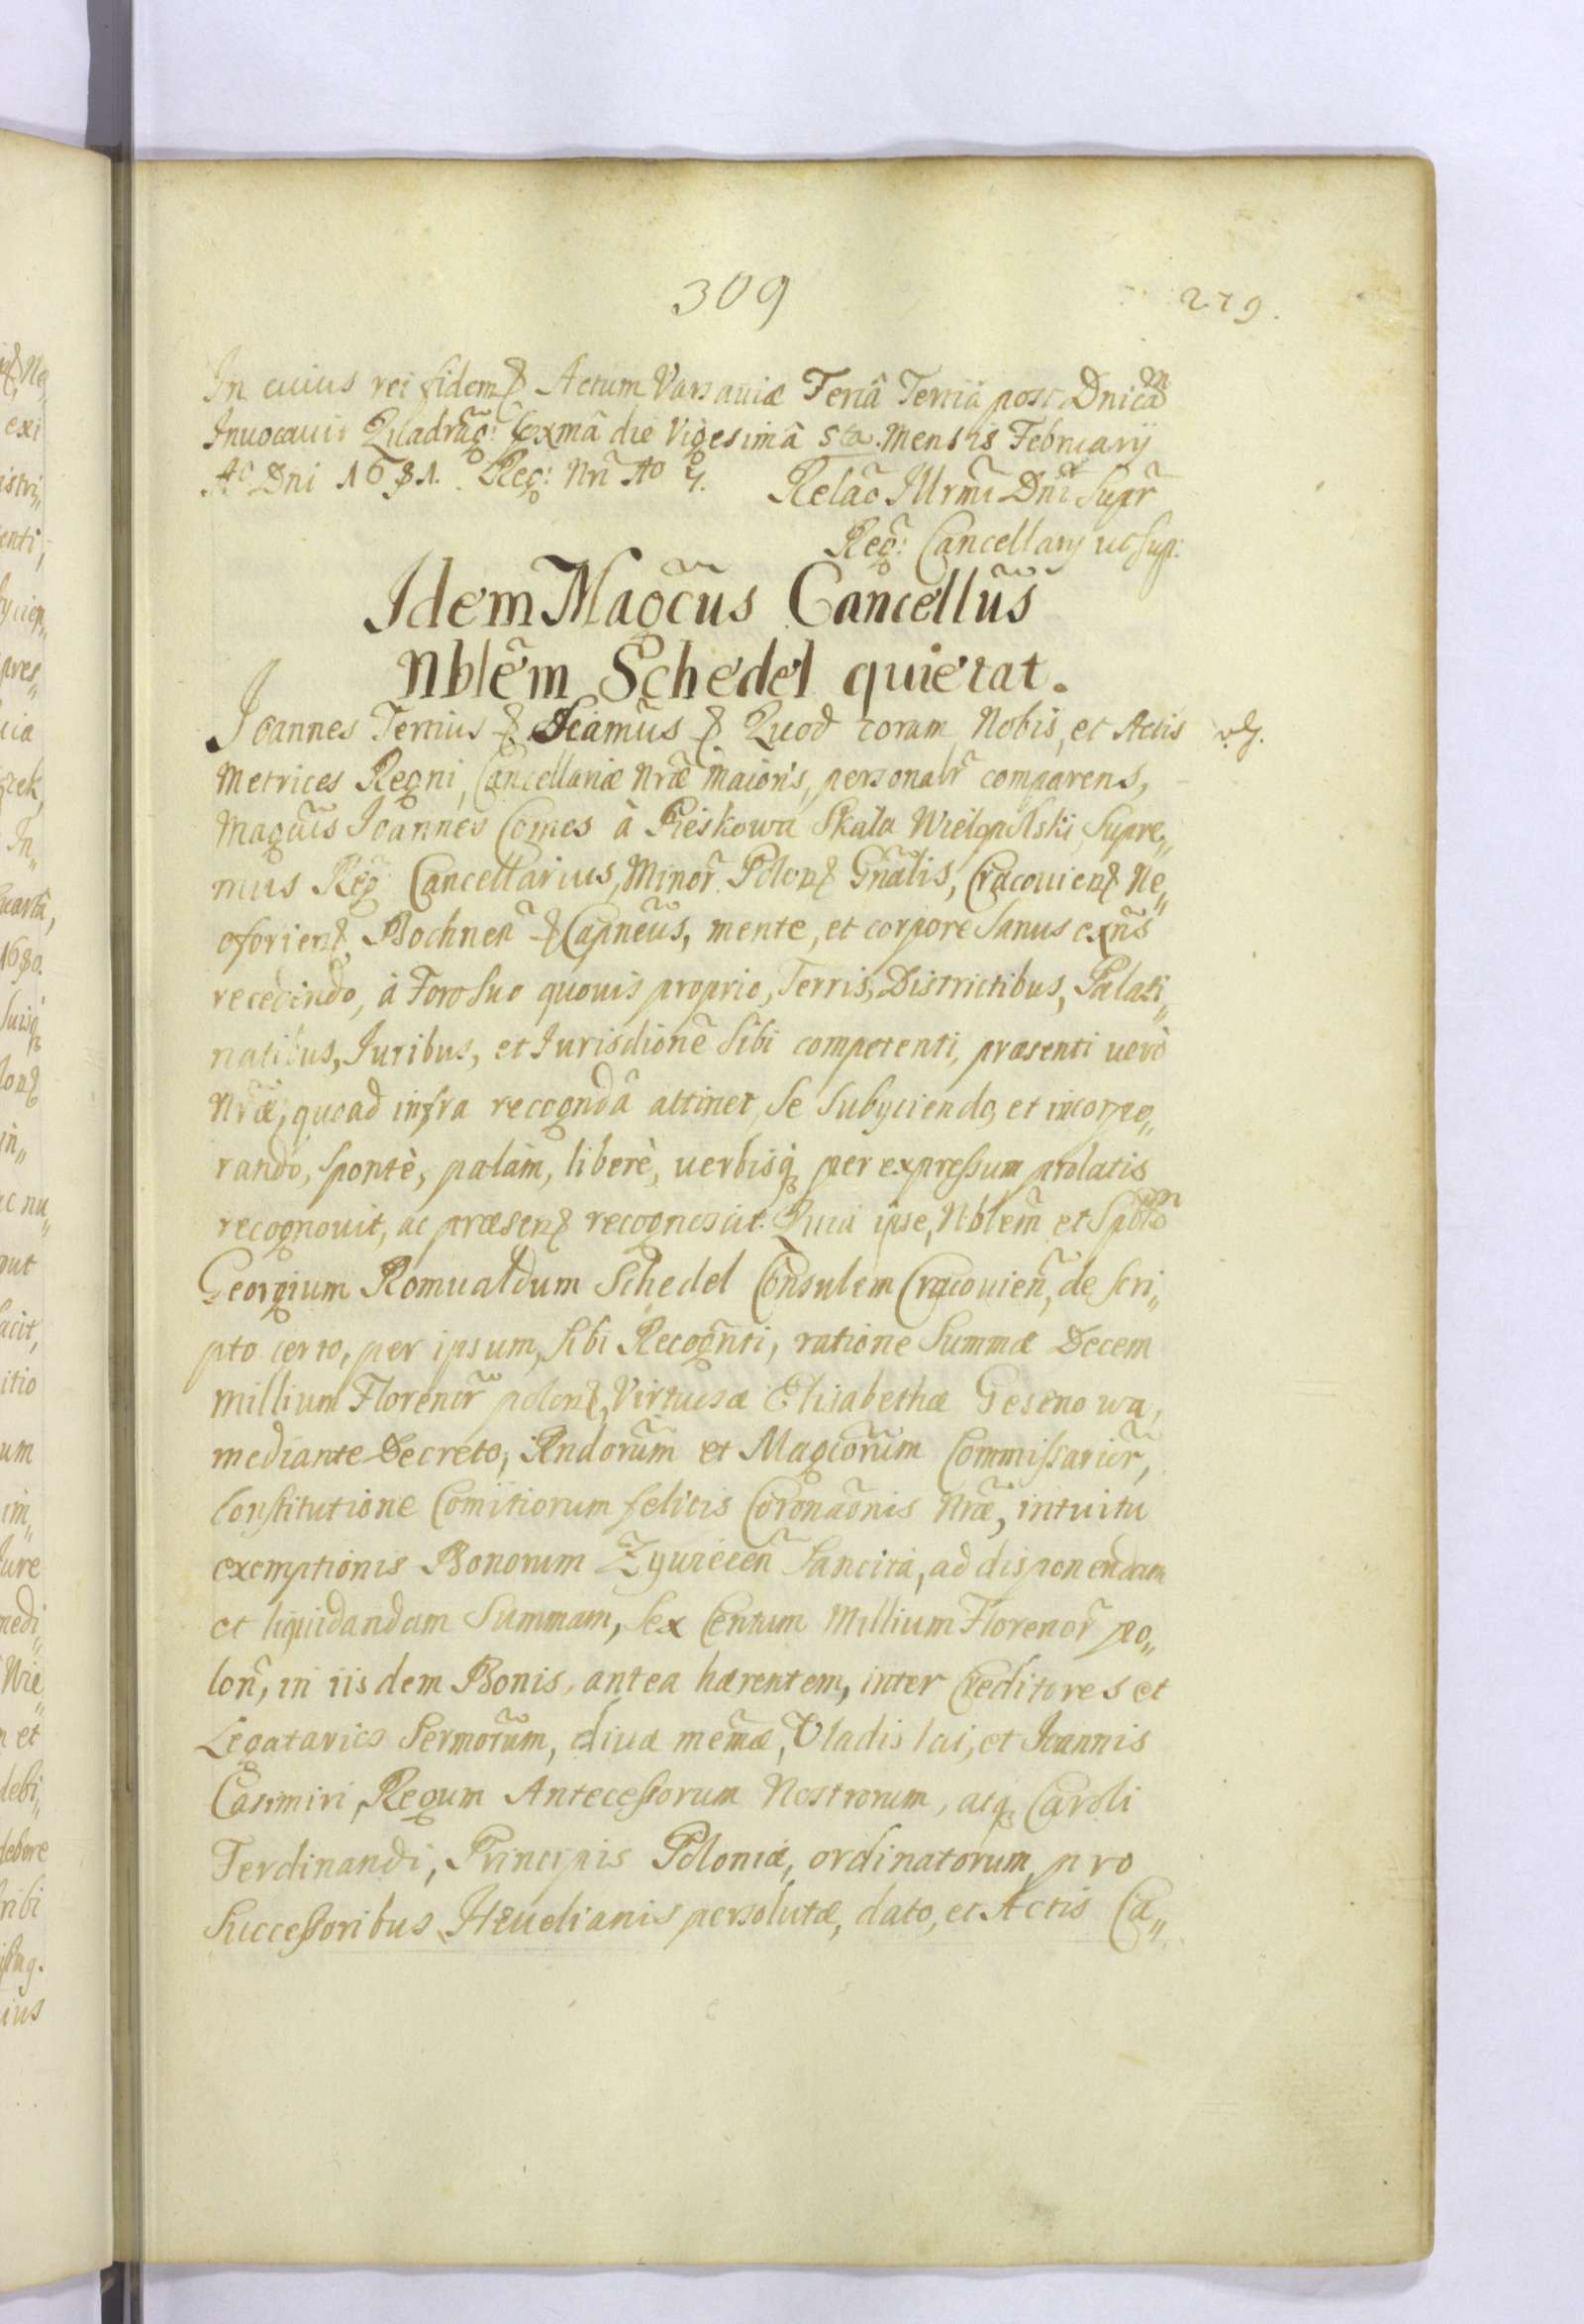 309
279.
In cuius rei fidem &c Actum Varsauiæ Feriâ Tertiâ post Dnicam
Inuocauit Quadrag: Exmâ die Vigesimâ 5ta. Mensis February
Ao Dni 1681. Reg: Nrĩ Ao 7. Relao Illrmi Dni Supr
Reg: Cancellary ut sup:
Idem Magcus Cancellus
Nblem Schedel quietat.
Joannes Tertius &c Sciamus &c Quod coram Nobis, et Actis
Metrices Regni, Cancellariæ Nræ Maioris, personalr comparens,
Magcus Joannes Comes à Pieskowa Skala Wielopolski, Supre„
mus Reg Cancellarius, Minor Polon& Gnalis, Cracouien& Ne„
oforien&, Bochnen &c Capneus, mente, et corpore sanus exns
recedendo, à Foro suo quouis proprio, Terris, Districtibus, Palati„
natibus, Iuribus, et Iurisdione sibi competenti, præsenti uerò
Nræ, quoad infra recogndâ attinet, se subyciendo, et incorpo„
rando, spontè, palàm, liberè, uerbisq per expressum prolatis
recognouit, ac præsen& recognoscit. Quia ipse, Nblem et Spblem
Georgium Romualdum Schedel Consulem Cracouien, de scri„
pto certo, per ipsum, sibi Recognti, ratione Summæ Decem
millium Florenor polon&, Virtuosæ Elisabethæ Gesenowa,
mediante Decreto, Rndorum et Magcorum Commissarior,
Constitutione Comitiorum felicis Coronaonis Nræ, intuitu
exemptionis Bonorum Zywiecen sancita, ad disponendam
et liquidandam Summam, sex Centum Millium Florenor po„
lon, in iisdem Bonis, antea hærentem, inter Creditores et
Legatarios Sermorum, diuæ memæ, Vladislai, et Joannis
Casimiri, Regum Antecessorum Nostrorum, atq Caroli
Ferdinandi, Principis Poloniæ, ordinatorum, pro
Successoribus Heuelianis persolutæ, dato, et Actis Ca„